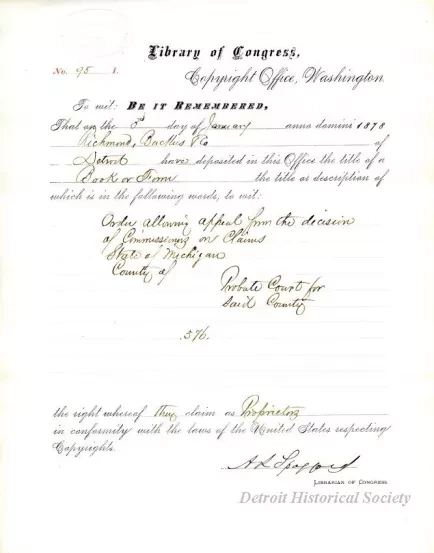 Library of Congress,
No. 95 I.
Copyright Office, Washington.
To wit: BE IT REMEMBERED,
That on the 3d day of January anno domini 1878
Richmond, Backus & Co of
Detroit have deposited in this Office the title of a
Book or Form the title or description of
which is in the following words, to wit:
Order allowing appeal from the decision
of Commissioners on Claims
State of Michigan
County of
Probate Court for
said County
.576.
the right whereof they claim as Proprietors
in conformity with the laws of the United States respecting
Copyrights.
A R Spofford
LIBRARIAN OF CONGRESS.
Detroit Historical Society